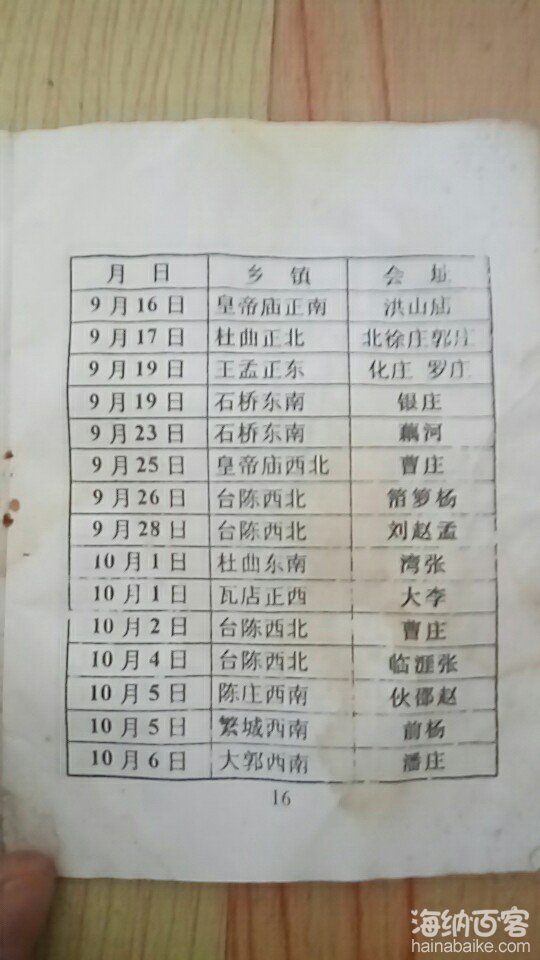 月 日 乡 镇 会 址
9月16日 皇帝庙正南 洪山庙
9月17日 杜曲正北 北徐庄郭庄
9月19日 王孟正东 化庄 罗庄
9月19日 石桥东南 银庄
9月23日 石桥东南 藕河
9月25日 皇帝庙西北 曹庄
9月26日 台陈西北 箔箩杨
9月28日 台陈西北 刘赵孟
10月1日 杜曲东南 湾张
10月1日 瓦店正西 大李
10月2日 台陈西北 曹庄
10月4日 台陈西北 临涯张
10月5日 陈庄西南 伙邵赵
10月5日 繁城西南 前杨
10月6日 大郭西南 潘庄
16
海纳百客
hainabaike.com